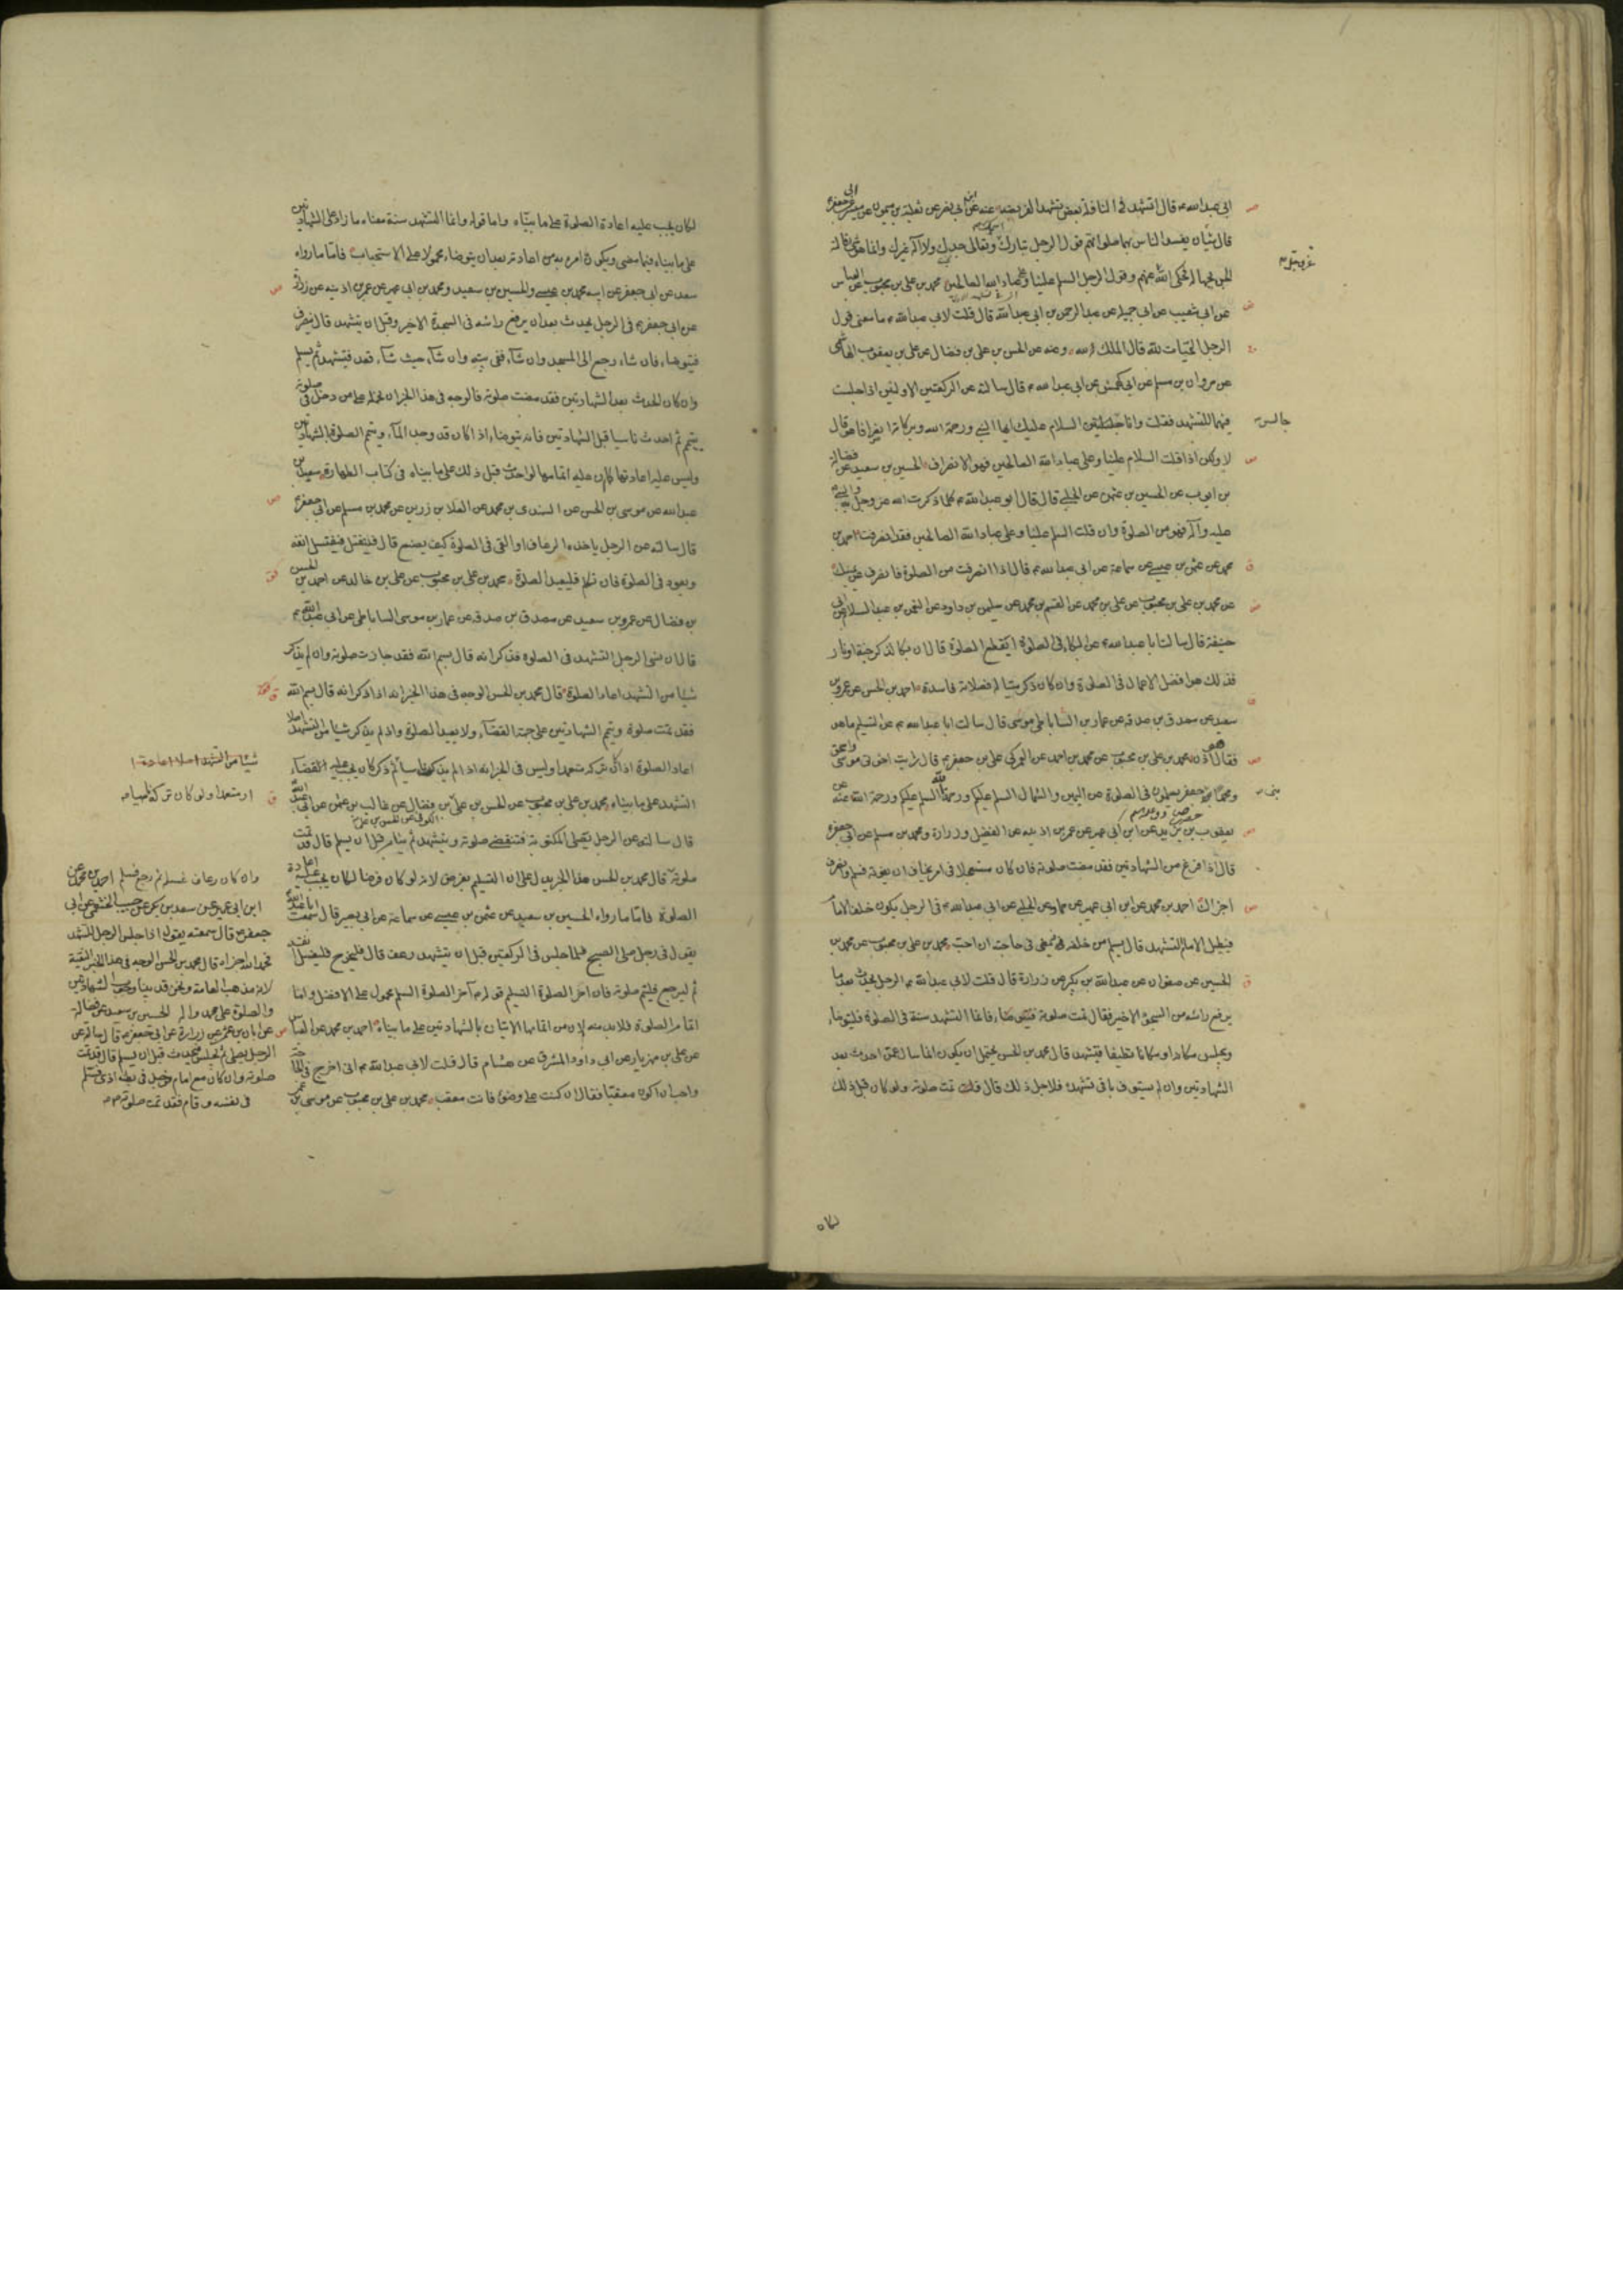 ابي عبد الله ع قال التشهد في النافلة بعض تشهد الفريضة عنه عن ابي نصر عن ثعلبة بن ميمون عن ميسر عن ابي جعفر ع
قال شيئان يفسد الناس بهما صلوتهم قول الرجل تبارك اسمك وتعالى جدك ولا اله غيرك وانما هو شيء قالته
الجن بجهالة فحكى الله عنهم وقول الرجل السلم علينا وعلى عباد الله الصالحين محمد بن علي بن محبوب عن العباس
عن ابي شعيب عن ابي جميلة عن عبد الرحمن بن ابي عبد الله قال قلت لابي عبد الله ع ما معنى قول
الرجل التحيات لله قال الملك لله وعنه عن الحسن بن علي بن فضال عن علي بن يعقوب الهاشمي
عن مروان بن مسلم عن ابي كهمش عن ابي عبد الله ع قال سالته عن الركعتين الاولتين اذا جلست
فيهما للتشهد فقلت وانا جالس السلام عليك ايها النبي ورحمة الله وبركاته انصراف هو قال
لا ولكن اذا قلت السلام علينا وعلى عباد الله الصالحين فهو الانصراف الحسين بن سعيد عن فضالة
بن ايوب عن الحسين بن عثمن عن الحلبي قال قال ابو عبد الله ع كلما ذكرت الله عز وجل به والنبي صلى الله
عليه وآله فهو من الصلوة وان قلت السلم علينا وعلى عباد الله الصالحين فقد انصرفت احمد بن
محمد عن عثمن بن عيسى عن سماعة عن ابي عبد الله ع قال اذا انصرفت من الصلوة فانصرف عن يمينك
عن محمد بن علي بن محبوب عن علي بن محمد عن القسم بن محمد عن سليمن بن داود عن النعمن بن عبد السلام عن ابي
حنيفة قال سالت ابا عبد الله ع عن البكاء في الصلوة ايقطع الصلوة قال ان بكا لذكر جنة او نار
فذلك هو افضل الاعمال في الصلوة وان كان ذكر ميتا له فصلاته فاسدة احمد بن الحسن عن عمرو بن
سعيد عن مصدق بن صدقة عن عمار بن موسى الساباطي قال سالت ابا عبد الله ع عن التسليم ما هو
فقال هو اذن محمد بن علي بن محبوب عن محمد بن احمد عن العمركي عن علي بن جعفر ع قال رايت اخوتي موسى واسحق
ومحمدا بني جعفر يسلمون في الصلوة عن اليمين والشمال السلم عليكم ورحمة الله السلم عليكم ورحمة الله عنه عن
يعقوب بن يزيد عن ابن ابي عمير عن عمر بن اذينه عن الفضيل وزرارة ومحمد بن مسلم عن ابي جعفر ع
قال اذا فرغ من الشهادتين فقد مضت صلوته فان كان مستعجلا في امر يخاف ان يفوته فسلم وانصرف
اجزاه احمد بن محمد عن ابن ابي عمير عن حماد عن الحلبي عن ابي عبد الله ع في الرجل يكون خلف الامام
فيطيل الامام التشهد قال يسلم من خلفه ويمضي في حاجته ان احب محمد بن علي بن محبوب عن محمد بن
الحسين عن صفوان عن عبد الله بن بكير عن زرارة قال قلت لابي عبد الله ع الرجل يحدث بعد ما
يرفع راسه من السجود الاخير فقال تمت صلوته فليتوضا فانما التشهد سنة في الصلوة فليتوضا
ويجلس مكانه او مكانا نظيفا فيتشهد قال محمد بن الحسن يحتمل ان يكون انما سال عمن احدث بعد
الشهادتين وان لم يستوف باقي تشهده فلاجل ذلك قال تمت صلوته ولو كان قبل ذلك
جالس
لكان
لكان يجب عليه اعادة الصلوة على ما بيناه واما قوله وانما التشهد سنة معناه ما زاد على الشهادتين
على ما بيناه فيما مضى ويكون ما امره به من اعادته بعد ان يتوضا محمولا على الاستحباب فاما ما رواه
سعد عن ابي جعفر عن ابيه محمد بن عيسى والحسين بن سعيد ومحمد بن ابي عمير عن عمر بن اذينه عن زرارة
عن ابي جعفر ع في الرجل يحدث بعد ان يرفع راسه في السجدة الاخير وقبل ان يتشهد قال ينصرف
فيتوضا فان شاء رجع الى المسجد وان شاء ففي بيته وان شاء حيث شاء قعد فيتشهد ثم يسلم
وان كان الحدث بعد الشهادتين فقد مضت صلوته فالوجه في هذا الخبر ان نحمله على من دخل في صلوته
بتيمم ثم احدث ناسيا قبل الشهادتين فانه يتوضا اذا كان قد وجد الماء ويتم الصلوة بالشهادتين
وليس عليه اعادتها كما ان عليه اتمامها لو احدث قبل ذلك على ما بيناه في كتاب الطهارة سعد بن
عبد الله عن موسى بن الحسن عن السندي بن محمد عن العلا بن رزين عن محمد بن مسلم عن ابي جعفر ع
قال سالته عن الرجل ياخذه الرعاف او القي في الصلوة كيف يصنع قال ينفتل فيغسل انفه
ويعود في الصلوة فان تكلم فليعد الصلوة محمد بن علي بن محبوب عن علي بن خالد عن احمد بن الحسن
بن فضال عن عمرو بن سعيد عن مصدق بن صدقة عن عمار بن موسى الساباطي عن ابي عبد الله ع
قال ان نسي الرجل التشهد في الصلوة فذكر انه قال بسم الله فقد جازت صلوته وان لم يذكر
شيئا من التشهد اعاد الصلوة قال محمد بن الحسن الوجه في هذا الخبر انه اذا ذكر انه قال بسم الله
فقد تمت صلوته ويتم الشهادتين على جهة القضاء ولا يعيد الصلوة واذا لم يذكر شيئا من التشهد اصلا
اعاد الصلوة اذا كان تركه متعمدا وليس في الخبر انه اذا لم يذكر ناسيا ثم ذكر كان يجب عليه القضاء
التشهد على ما بيناه محمد بن علي بن محبوب عن الحسن بن علي بن فضال عن غالب بن عثمن عن ابي عبد الله
قال سالته عن الرجل يصلي المكتوبة فتنقضي صلوته ويتشهد ثم ينام قبل ان يسلم قال قد تمت
صلوته قال محمد بن الحسن هذا الخبر يدل على ان التسليم ليس بفرض لانه لو كان فرضا لكان يجب عليه اعادة
الصلوة فاما ما رواه الحسين بن سعيد عن عثمن بن عيسى عن سماعة عن ابي بصير قال سمعت ابا عبد الله
يقول في رجل صلى الصبح فلما جلس في الركعتين قبل ان يتشهد رعف قال فليخرج فليغسل انفه
ثم ليرجع فليتم صلوته فان اخر الصلوة التسليم قوله آخر الصلوة السلم محمول على الافضل واما
اتمام الصلوة فلابد منه لان من اتمامها الاتيان بالشهادتين على ما بيناه احمد بن محمد عن العباس
عن علي بن مهزيار عن ابي داود المسترق عن هشام قال قلت لابي عبد الله ع اني اخرج في الحاجة
واحب ان اكون معقبا فقال ان كنت على وضوء فانت معقب محمد بن علي بن محبوب عن موسى بن عمر
شيئا من التشهد اصلا اعاد
او متعمدا ولو كان تركه ناسيا
وان كان رعاف غسله ثم رجع فسلم احمد بن محمد عن
ابن ابي عمير عن سعد بن بكر عن حبيب الخثعمي عن ابي
جعفر ع قال سمعته يقول اذا جلس الرجل للتشهد
فحمد الله اجزاه قال محمد بن الحسن الوجه في هذا الخبر التقية
لانه مذهب العامة ونحن قد بينا وجوب الشهادتين
والصلوة على محمد واله الحسين بن سعيد عن فضالة
عن ابان بن عثمن عن زرارة عن ابي جعفر ع قال سالته عن
الرجل يصلي ثم يجلس فيحدث قبل ان يسلم قال قد تمت
صلوته وان كان مع امام فوجد في بطنه اذى فسلم
في نفسه وقام فقد تمت صلوته